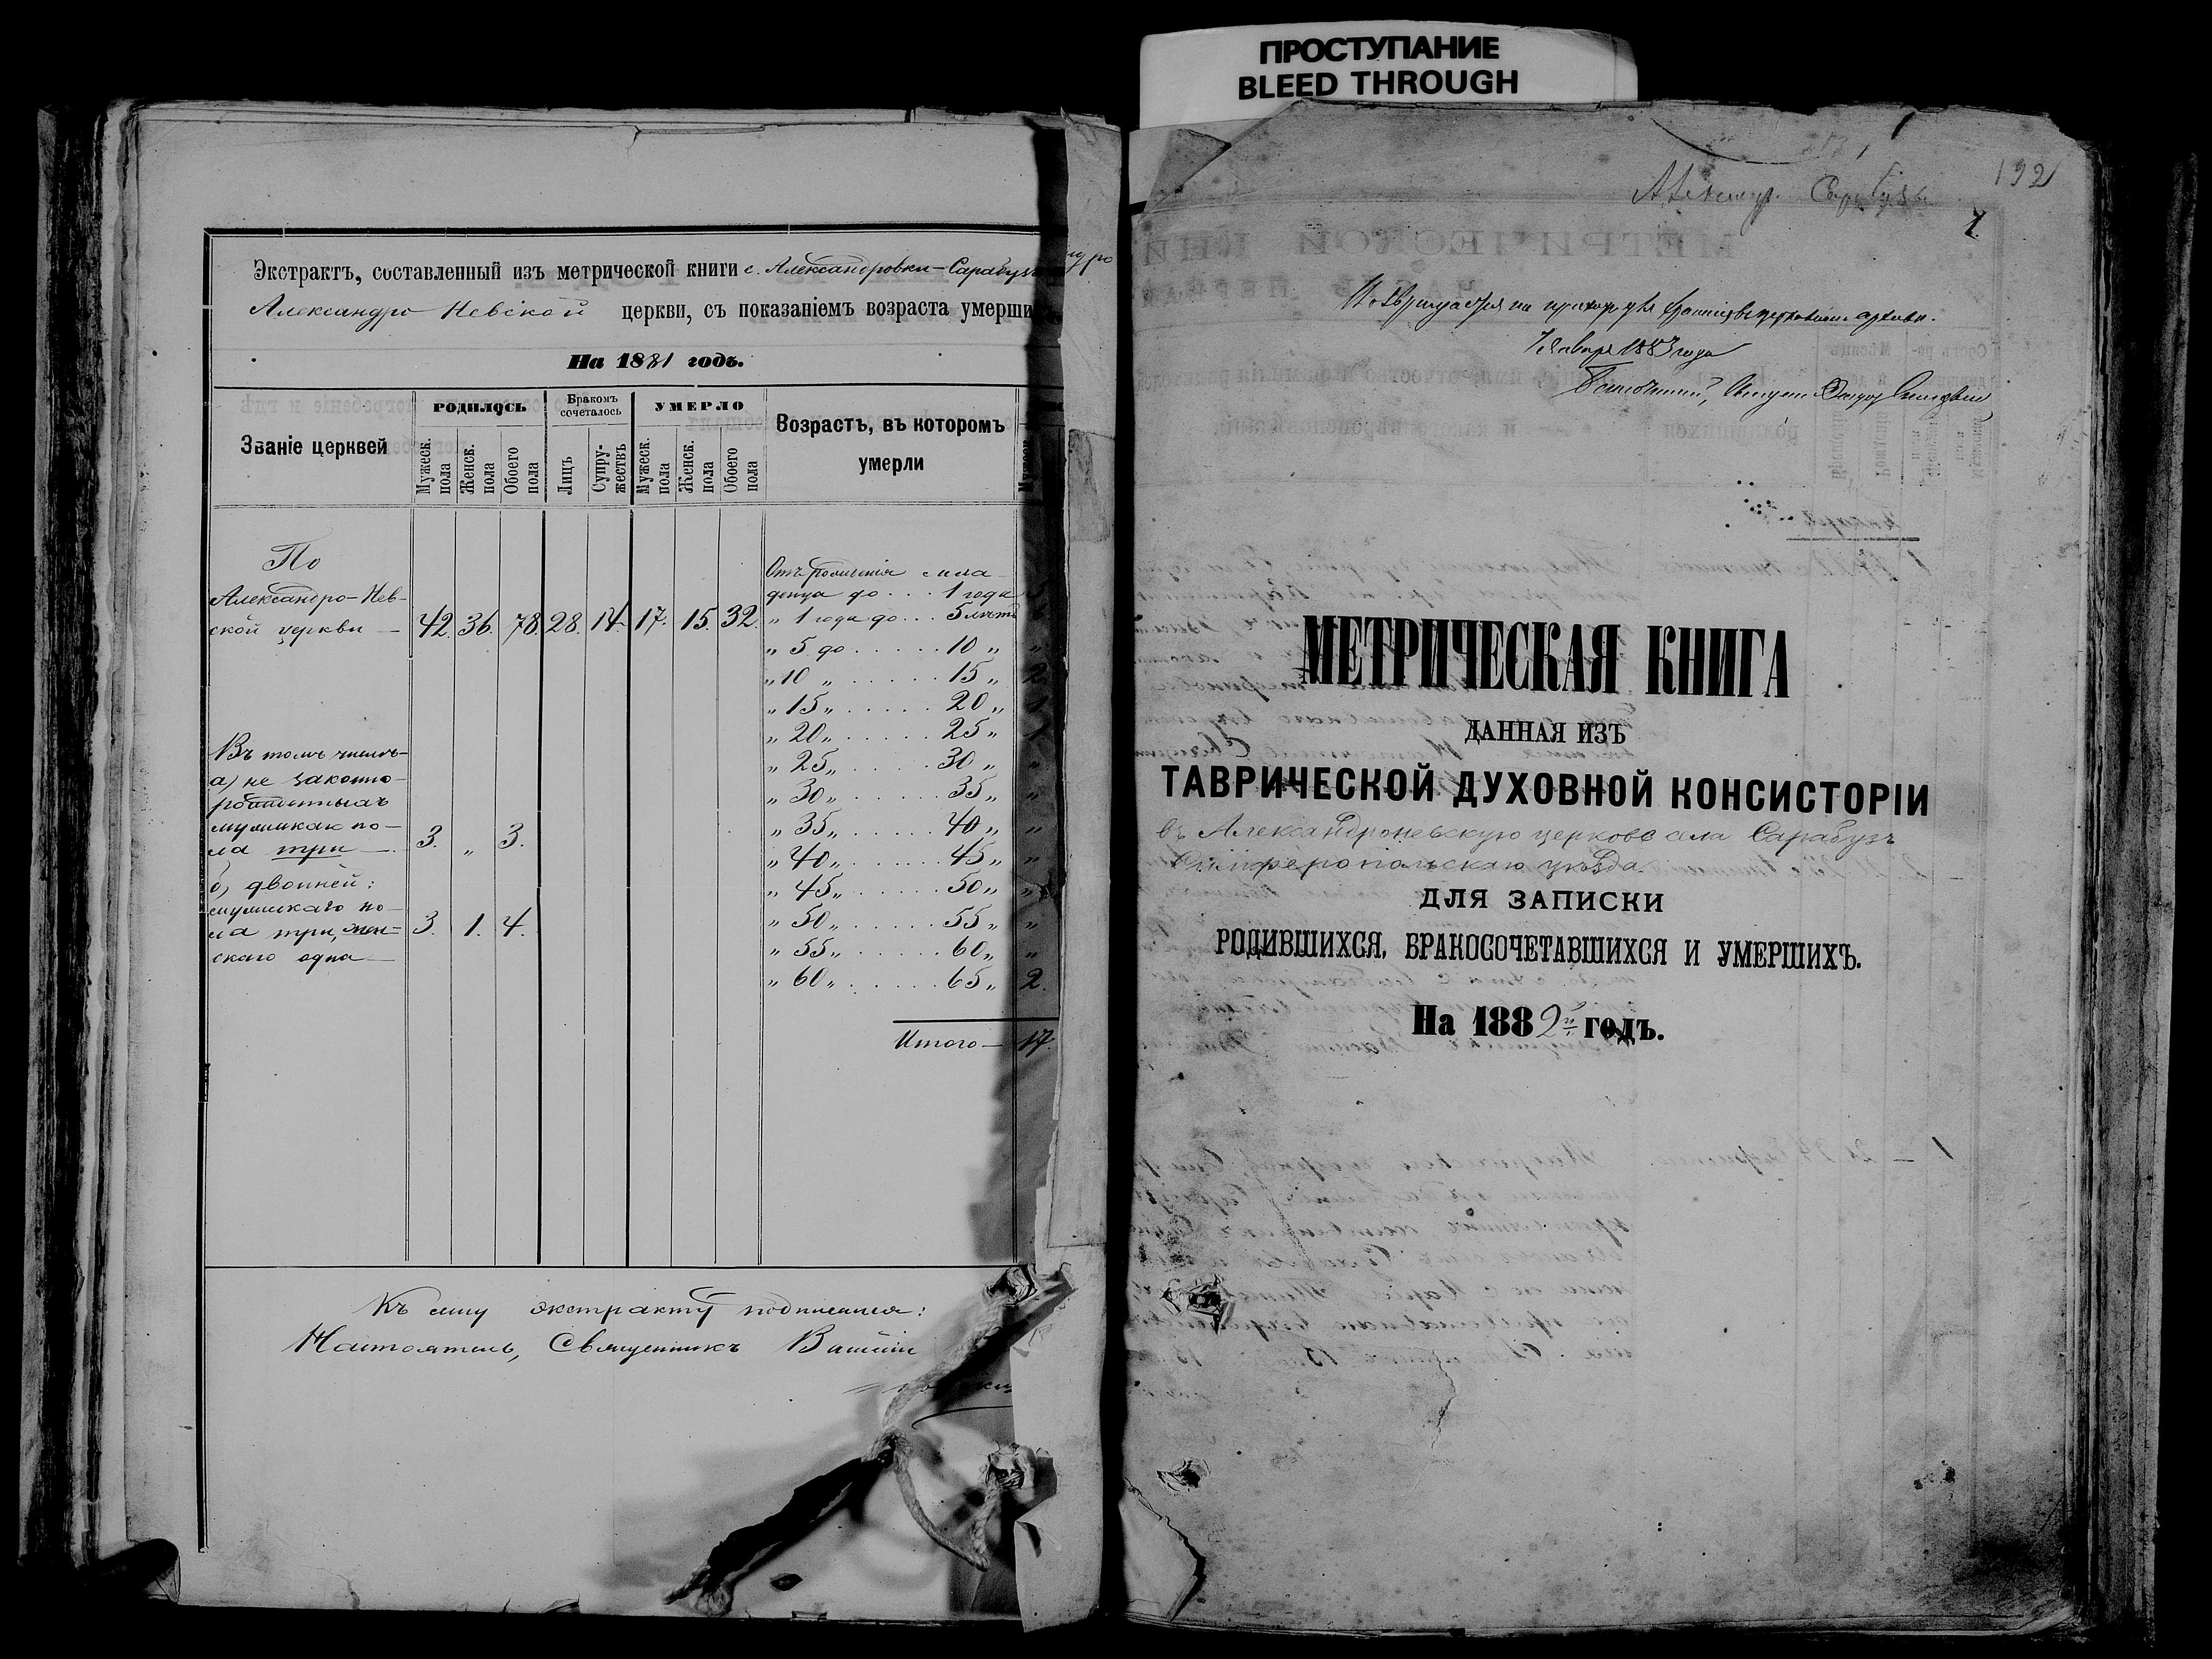 ПРОСТУПАНИЕ
BLEED THROUGH
Экстрактъ, составленный изъ метрической книги с. Александровки-Сарабузъ
Александро Невской церкви, съ показаніемъ возраста умерши
На 1881 годъ.
Званіе церквей
РОДИЛОСЬ
Бракомъ сочеталось
УМЕРЛО
Возрастъ, въ которомъ умерли
Мужеск. пола
Женск. пола
Обоего пола
Лицъ
Супружествъ
Мужеск. пола
Женск. пола
Обоего пола
По
Александро-Нев-
ской церкви — 42. 36. 78. 28. 14. 17. 15. 32.
Отъ рожденія мла-
денца до . . . 1 года
„ 1 года до . . . 5 лѣтъ
„ 5 до . . . . . 10 „ „
„ 10 „ . . . . . 15 „ 2
„ 15 „ . . . . . 20 „ 1
„ 20 „ . . . . . 25 „ 1
„ 25 „ . . . . . 30 „ „
„ 30 „ . . . . . 35 „ „
„ 35 „ . . . . . 40 „ „
„ 40 „ . . . . . 45 „ „
„ 45 „ . . . . . 50 „ „
„ 50 „ . . . . . 55 „ „
„ 55 „ . . . . . 60 „ „
„ 60 „ . . . . . 65 „ 2.
Итого — 17.
Въ томъ числѣ-
а) не законно-
рожденныхъ
мужскаго по-
ла три — 3. „ 3.
б) двойней:
мужскаго по-
ла три, жен- 3. 1. 4.
скаго одна —
Къ сему экстракту подписался:
Настоятель, Священникъ
192
Сарабузы
1.
Января 1883 года
МЕТРИЧЕСКАЯ КНИГА
ДАННАЯ ИЗЪ
ТАВРИЧЕСКОЙ ДУХОВНОЙ КОНСИСТОРІИ
въ Александроневскую церковь села Сарабузъ
Симферопольскаго уѣзда.
ДЛЯ ЗАПИСКИ
РОДИВШИХСЯ, БРАКОСОЧЕТАВШИХСЯ И УМЕРШИХЪ.
На 1882й годъ.